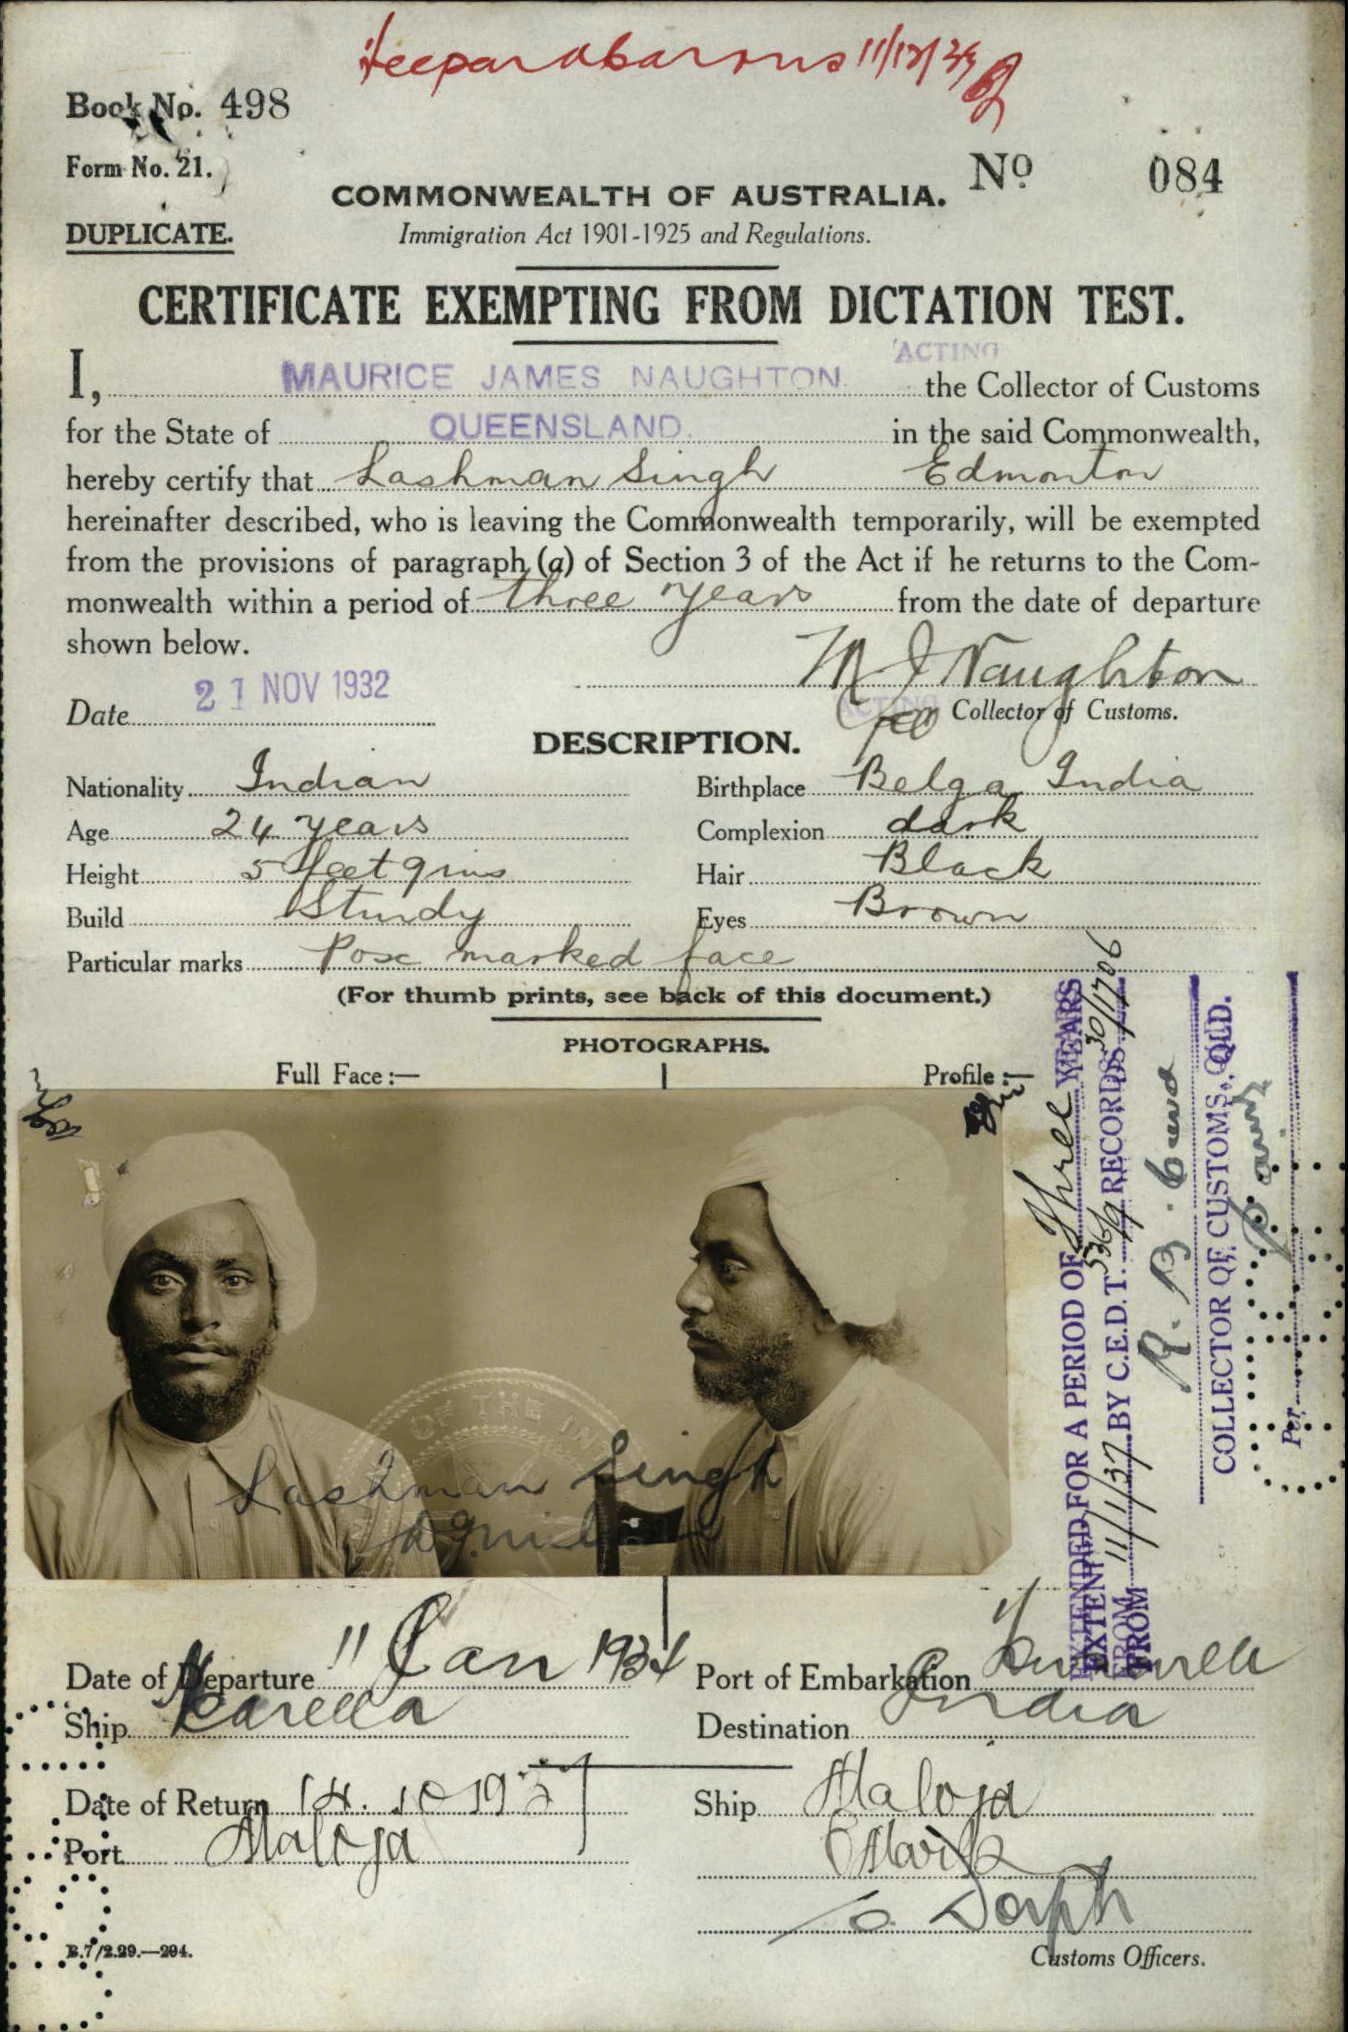 11/12/
Book No. 498
Form No. 21.
Nº 084
COMMONWEALTH OF AUSTRALIA.
DUPLICATE.
Immigration Act 1901-1925 and Regulations.
CERTIFICATE EXEMPTING FROM DICTATION TEST.
ACTING
I, MAURICE JAMES NAUGHTON. the Collector of Customs
for the State of QUEENSLAND. in the said Commonwealth,
hereby certify that Lashman Singh Edmonton
hereinafter described, who is leaving the Commonwealth temporarily, will be exempted
from the provisions of paragraph (a) of Section 3 of the Act if he returns to the Com-
monwealth within a period of three years from the date of departure
shown below.
M J Naughton
21 NOV 1932
Date
ACTING Collector of Customs.
DESCRIPTION.
Nationality Indian Birthplace Belga India
Age 24 years Complexion dark
Height 5 feet 9 ins Hair Black
Build Sturdy Eyes Brown
Particular marks Pox marked face
(For thumb prints, see back of this document.)
PHOTOGRAPHS.
Full Face :— Profile :—
Lashman Singh
EXTENDED FOR A PERIOD OF Three YEARS
FROM 11/1/37 BY C.E.D.T. 536/9 RECORDS 30/1706
R. B.
COLLECTOR OF CUSTOMS, QLD.
Per
Date of Departure 11 Jan 1934 Port of Embarkation
Ship Karella Destination India
Date of Return 14. 10 1937 Ship Maloja
Port Maloja
Customs Officers.
B.7/2.29.—294.